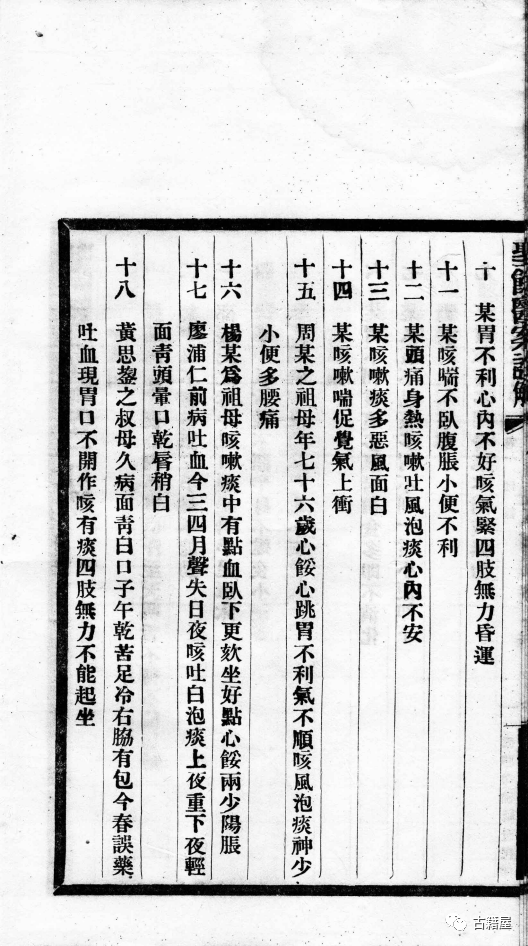 十 某胃不利心內不好咳氣緊四肢無力昏運
十一 某咳喘不臥腹脹小便不利
十二 某頭痛身熱咳嗽吐風泡痰心內不安
十三 某咳嗽痰多惡風面白
十四 某咳嗽喘促覺氣上衝
十五 周某之祖母年七十六歲心餒心跳胃不利氣不順咳風泡痰神少
小便多腰痛
十六 楊某爲祖母咳嗽痰中有點血臥下更欬坐好點心餒兩少陽脹
十七 廖浦仁前病吐血今三四月聲失日夜咳吐白泡痰上夜重下夜輕
面靑頭暈口乾唇稍白
十八 黃思鋆之叔母久病面靑白口子午乾苦足冷右脇有包今春誤藥
吐血現胃口不開作咳有痰四肢無力不能起坐
古籍屋